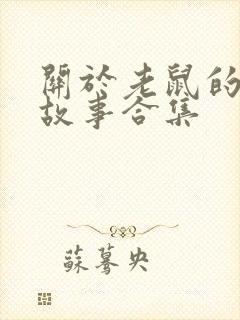 關於老鼠的
故事合集
蘇驀央